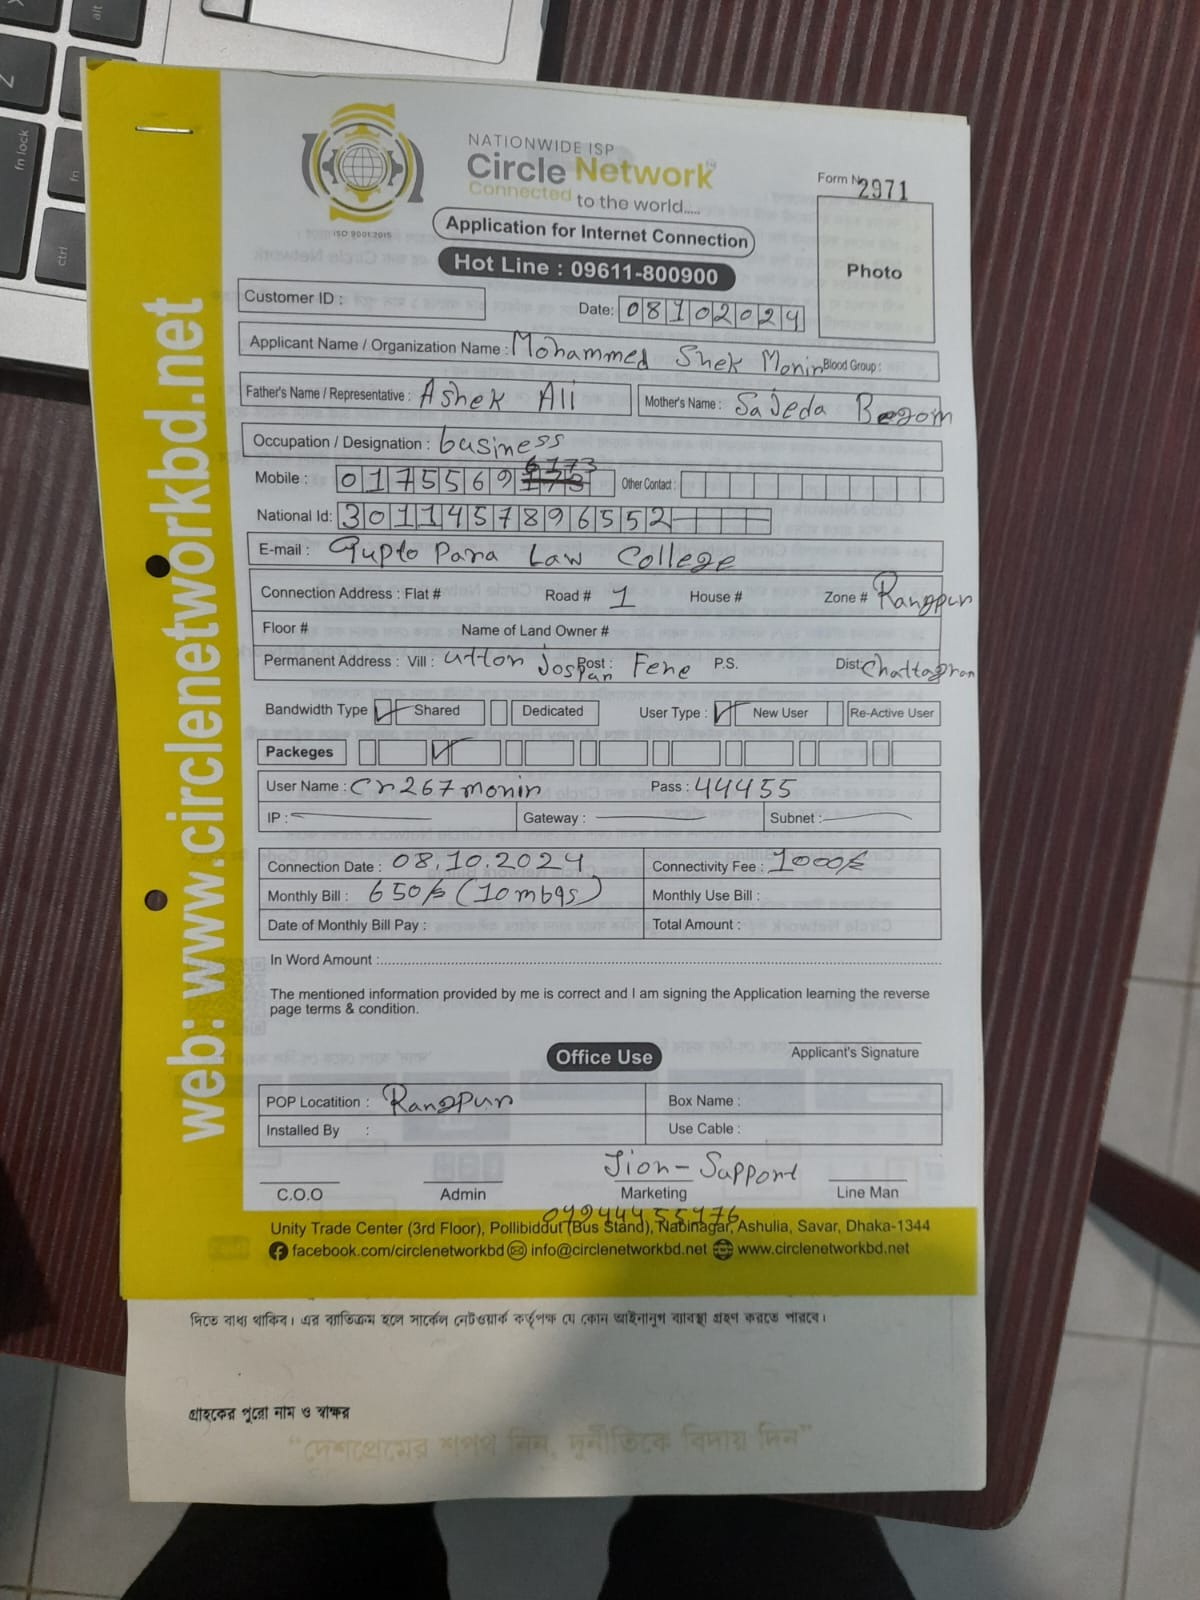 NATIONWIDE ISP
Circle Network
Connected to the world.....
ISO 9001:2015
Form No 2971
Application for Internet Connection
Hot Line : 09611-800900
Photo
Customer ID :
Date: 08102024
Applicant Name / Organization Name : Mohammed Shek Monin Blood Group :
Father's Name / Representative : Ashek Ali Mother's Name : Sajeda Begom
Occupation / Designation : business
6173
Mobile : 01755691 173 Other Contact :
National Id: 3011457896552
E-mail : Gupto Para Law College
Connection Address : Flat # Road # 1 House # Zone # Rangpur
Floor # Name of Land Owner #
Permanent Address : Vill : utton Jospan Post : Fene P.S. Dist: Chattagram
Bandwidth Type Shared Dedicated User Type : New User Re-Active User
Packeges
User Name : Cr267monin Pass : 44455
IP : Gateway : Subnet :
Connection Date : 08.10.2024 Connectivity Fee : 1000/=
Monthly Bill : 650/= (10mbqs) Monthly Use Bill :
Date of Monthly Bill Pay : Total Amount :
In Word Amount :
The mentioned information provided by me is correct and I am signing the Application learning the reverse
page terms & condition.
Office Use
Applicant's Signature
POP Locatition : Rangpur Box Name :
Installed By : Use Cable :
Jion - Support
C.O.O Admin Marketing Line Man
Unity Trade Center (3rd Floor), Pollibiddut (Bus Stand), Nabinagar, Ashulia, Savar, Dhaka-1344
facebook.com/circlenetworkbd info@circlenetworkbd.net www.circlenetworkbd.net
web: www.circlenetworkbd.net
দিতে বাধ্য থাকিব। এর ব্যতিক্রম হলে সার্কেল নেটওয়ার্ক কর্তৃপক্ষ যে কোন আইনানুগ ব্যাবস্থা গ্রহণ করতে পারবে।
গ্রাহকের পুরো নাম ও স্বাক্ষর
“দেশপ্রেমের শপথ নিন, দুর্নীতিকে বিদায় দিন”
alt
Z
fn lock
fn
ctrl